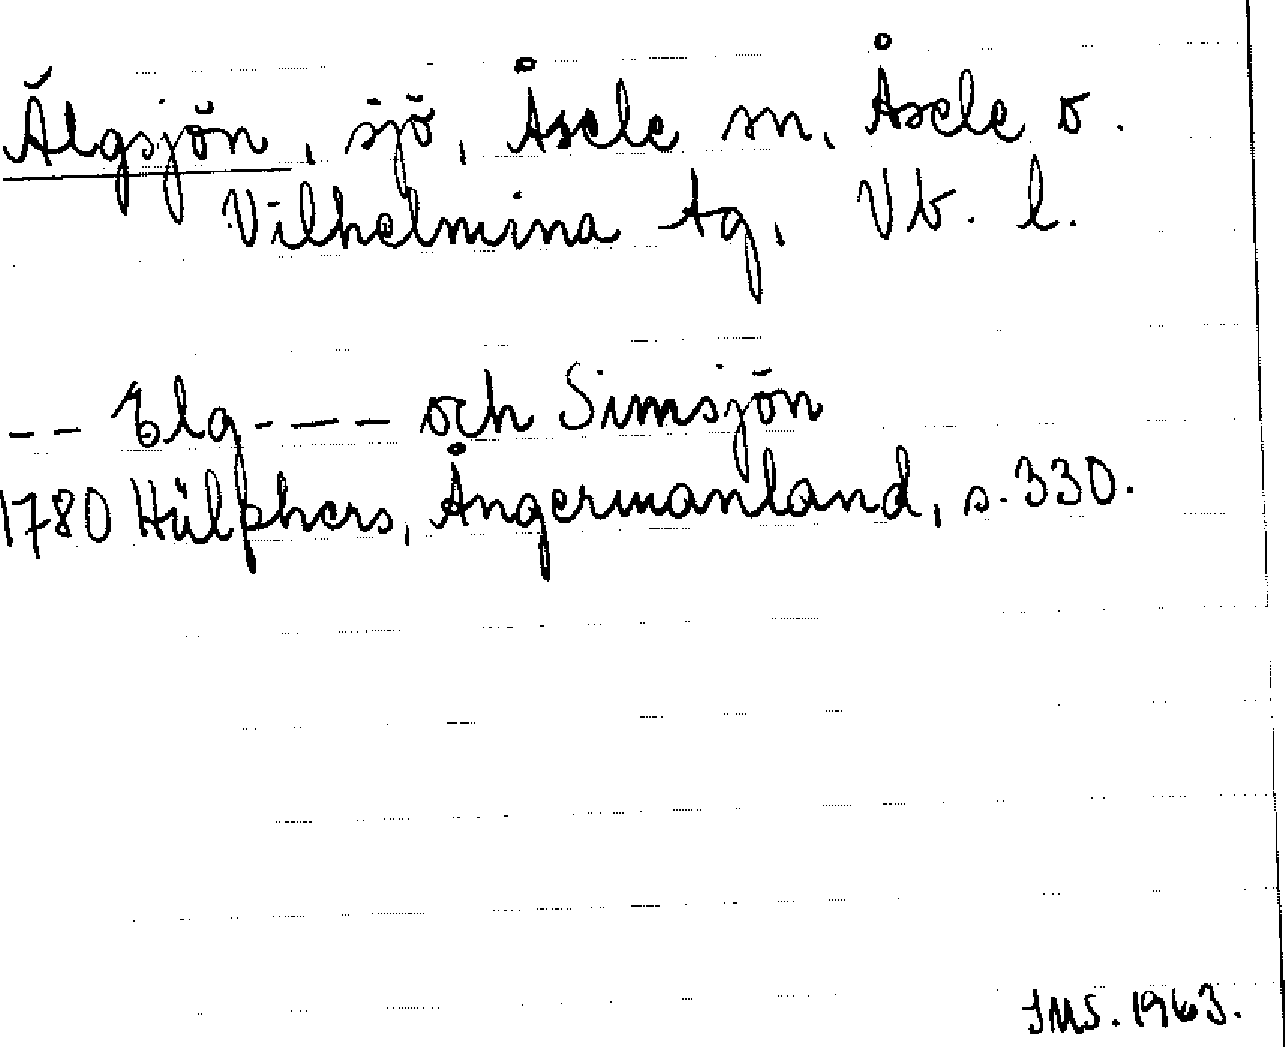 Älgsjön, sjö, Åsele sn, Åsele o.
Vilhelmina tg, Vb. l.
-- Elg---- och Simsjön
1780 Hülphers, Ångermanland, s. 330.
IMS. 1963.